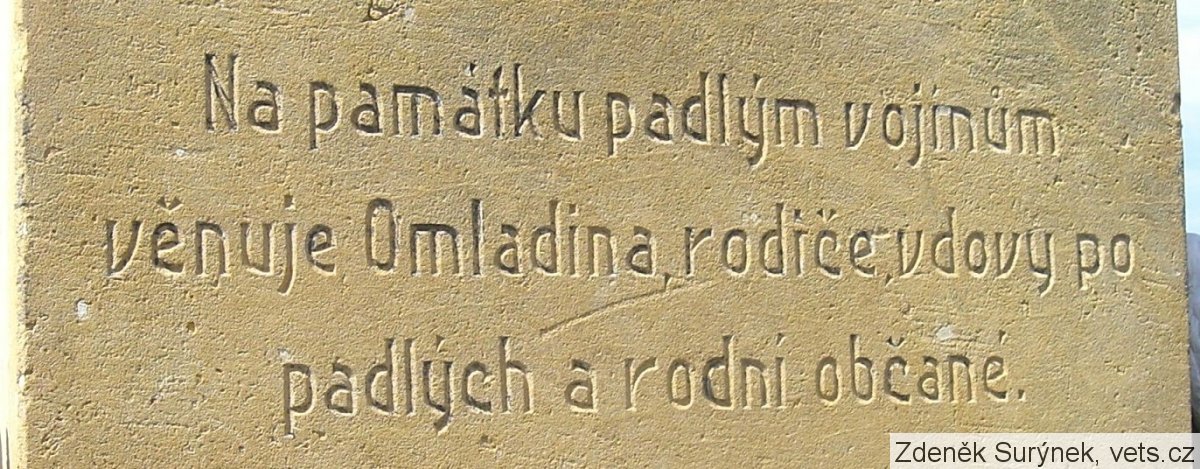 Na památku padlým vojínům
věnuje Omladina, rodiče, vdovy po
padlých a rodní občané.
Zdeněk Surýnek, vets.cz